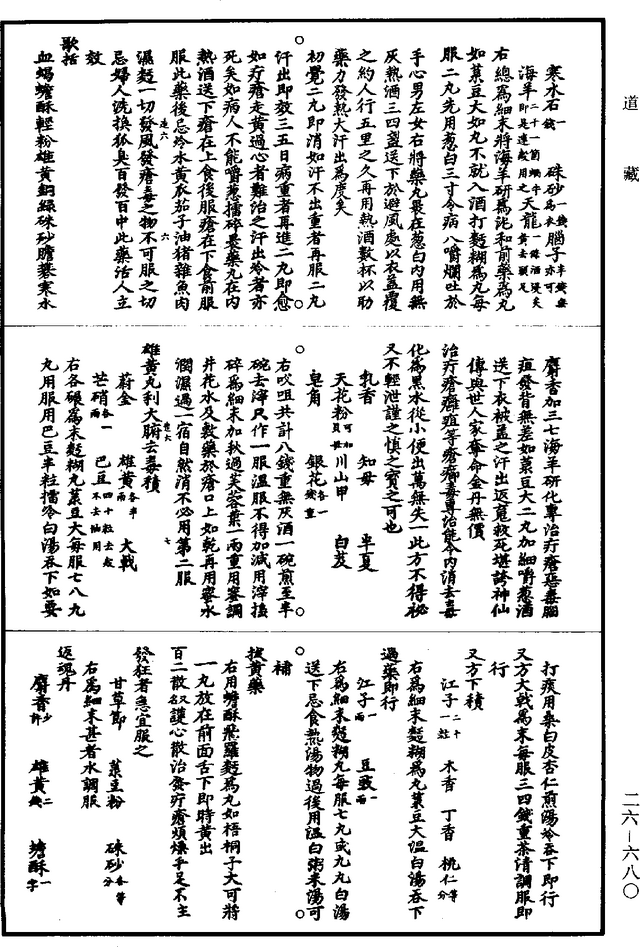 道藏
寒水石一錢　硃砂一錢為衣　腦子半錢無亦可
海羊二十一箇蝸牛即是連殼用之　天龍一條酒浸炙黃去頭足
右總為細末將海羊研為泥和前藥為丸
如菉豆大如丸不就入酒打麵糊為丸每
服二丸先用蔥白三寸令病人嚼爛吐於
手心男左女右將藥丸裹在蔥白內用無
灰熱酒三四盞送下於避風處以衣蓋覆
之約人行五里之久再用熱酒數杯以助
藥力發熱大汗出為度矣
初覺二丸即消如汗不出重者再服二丸
汗出即效三五日病重者再進二丸即愈
如疔瘡走黃過心者難治之汗出冷者亦
死矣如病人不能嚼蔥擂碎裹藥丸在內
熱酒送下瘡在上食後服瘡在下食前服
服此藥後忌冷水黃瓜茄子油猪雞魚肉
濕麵一切發風發瘡毒之物不可服之切
忌婦人洗換狐臭百發百中此藥活人立
效
歌括
血竭蟾酥輕粉雄黃銅綠硃砂膽礬寒水
麝香加三七海羊研化專治疔瘡惡毒腦
疽發背無差如菉豆大二丸加細嚼蔥酒
送下衣被蓋之汗出返魂救死堪誇神仙
傳與世人家奪命金丹無價
治疔瘡癰疽等瘡癤毒專治能令內消去毒
化為黑水從小便出萬無失一此方不得祕
又不輕泄謹之慎之寶之可也
乳香　知母　半夏
天花粉可加貝母　川山甲　白芨
皂角　銀花各一錢重
右㕮咀共計八錢重無灰酒一碗煎至半
碗去滓只作一服溫服不得加減用滓擣
碎為細末加秋過芙蓉葉一兩重用蜜調
井花水及敷藥於瘡口上如乾再用蜜水
潤濕過一宿自然消不必用第二服
雄黃丸利大腑去毒積
蔚金　雄黃各半兩　大戟
芒硝各一兩　巴豆四十粒去殼不去油用
右各碾為末麵糊丸菉豆大每服七八九
丸用服用巴豆半粒擂冷白湯吞下如要
打痰用桑白皮杏仁煎湯冷吞下即行
又方大戟為末每服三四錢重茶清調服即
行
又方下積
江子二十一粒　木香　丁香　桃仁等分
右為細末麵糊為丸菉豆大溫白湯吞下
過藥即行
江子一兩　豆豉一兩
右為細末麵糊丸每服七丸或九丸白湯
送下忌食熱湯物過後用溫白粥米湯可
補
拔黃藥
右用蟾酥飛羅麵為丸如梧桐子大可將
一丸放在前面舌下即時黃出
百二散又名護心散治發疔瘡煩燥手足不主
發狂者急宜服之
甘草節　菉豆粉　硃砂各等分
右為細末甚者水調服
返魂丹
麝香少許　雄黃二錢　蟾酥一字
二六—六八〇